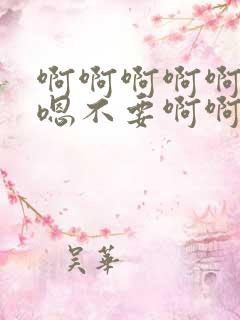 啊啊啊啊啊
嗯不要啊啊
吴华